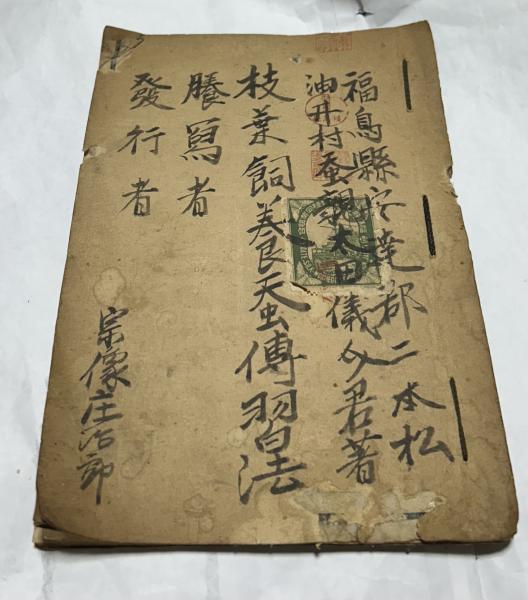 福島縣安達郡二本松
油井村蚕親太田儀分君著
枝葉飼養蚕傳習法
謄寫者
發行者
宗像庄治郎